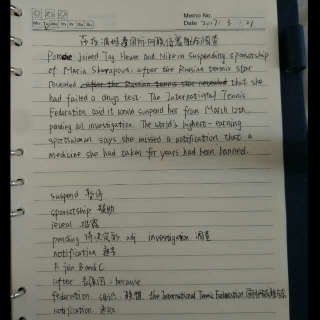 Memo No.
Mo Tu We Th Fr Sa Su
Date 2017. 3. 21
莎拉波娃
Porsche joined Tag Heuer and Nike in suspending sponsorship
of Maria Sharapova after the Russian tennis star
revealed after the Russian tennis star revealed that she
had failed a drugs test. The International Tennis
Federation said it would suspend her from March 12th,
pending an investigation. The world's highest-earning
sportswoman says she missed a notification that a
medicine she had taken for years had been banned.
suspend 暂停
sponsorship 赞助
reveal 揭露
pending 待决定的 adj investigation 调查
notification 通知
A join B and C
after 表原因: because
federation 组织, 联盟. the International Tennis Federation
notification 通知